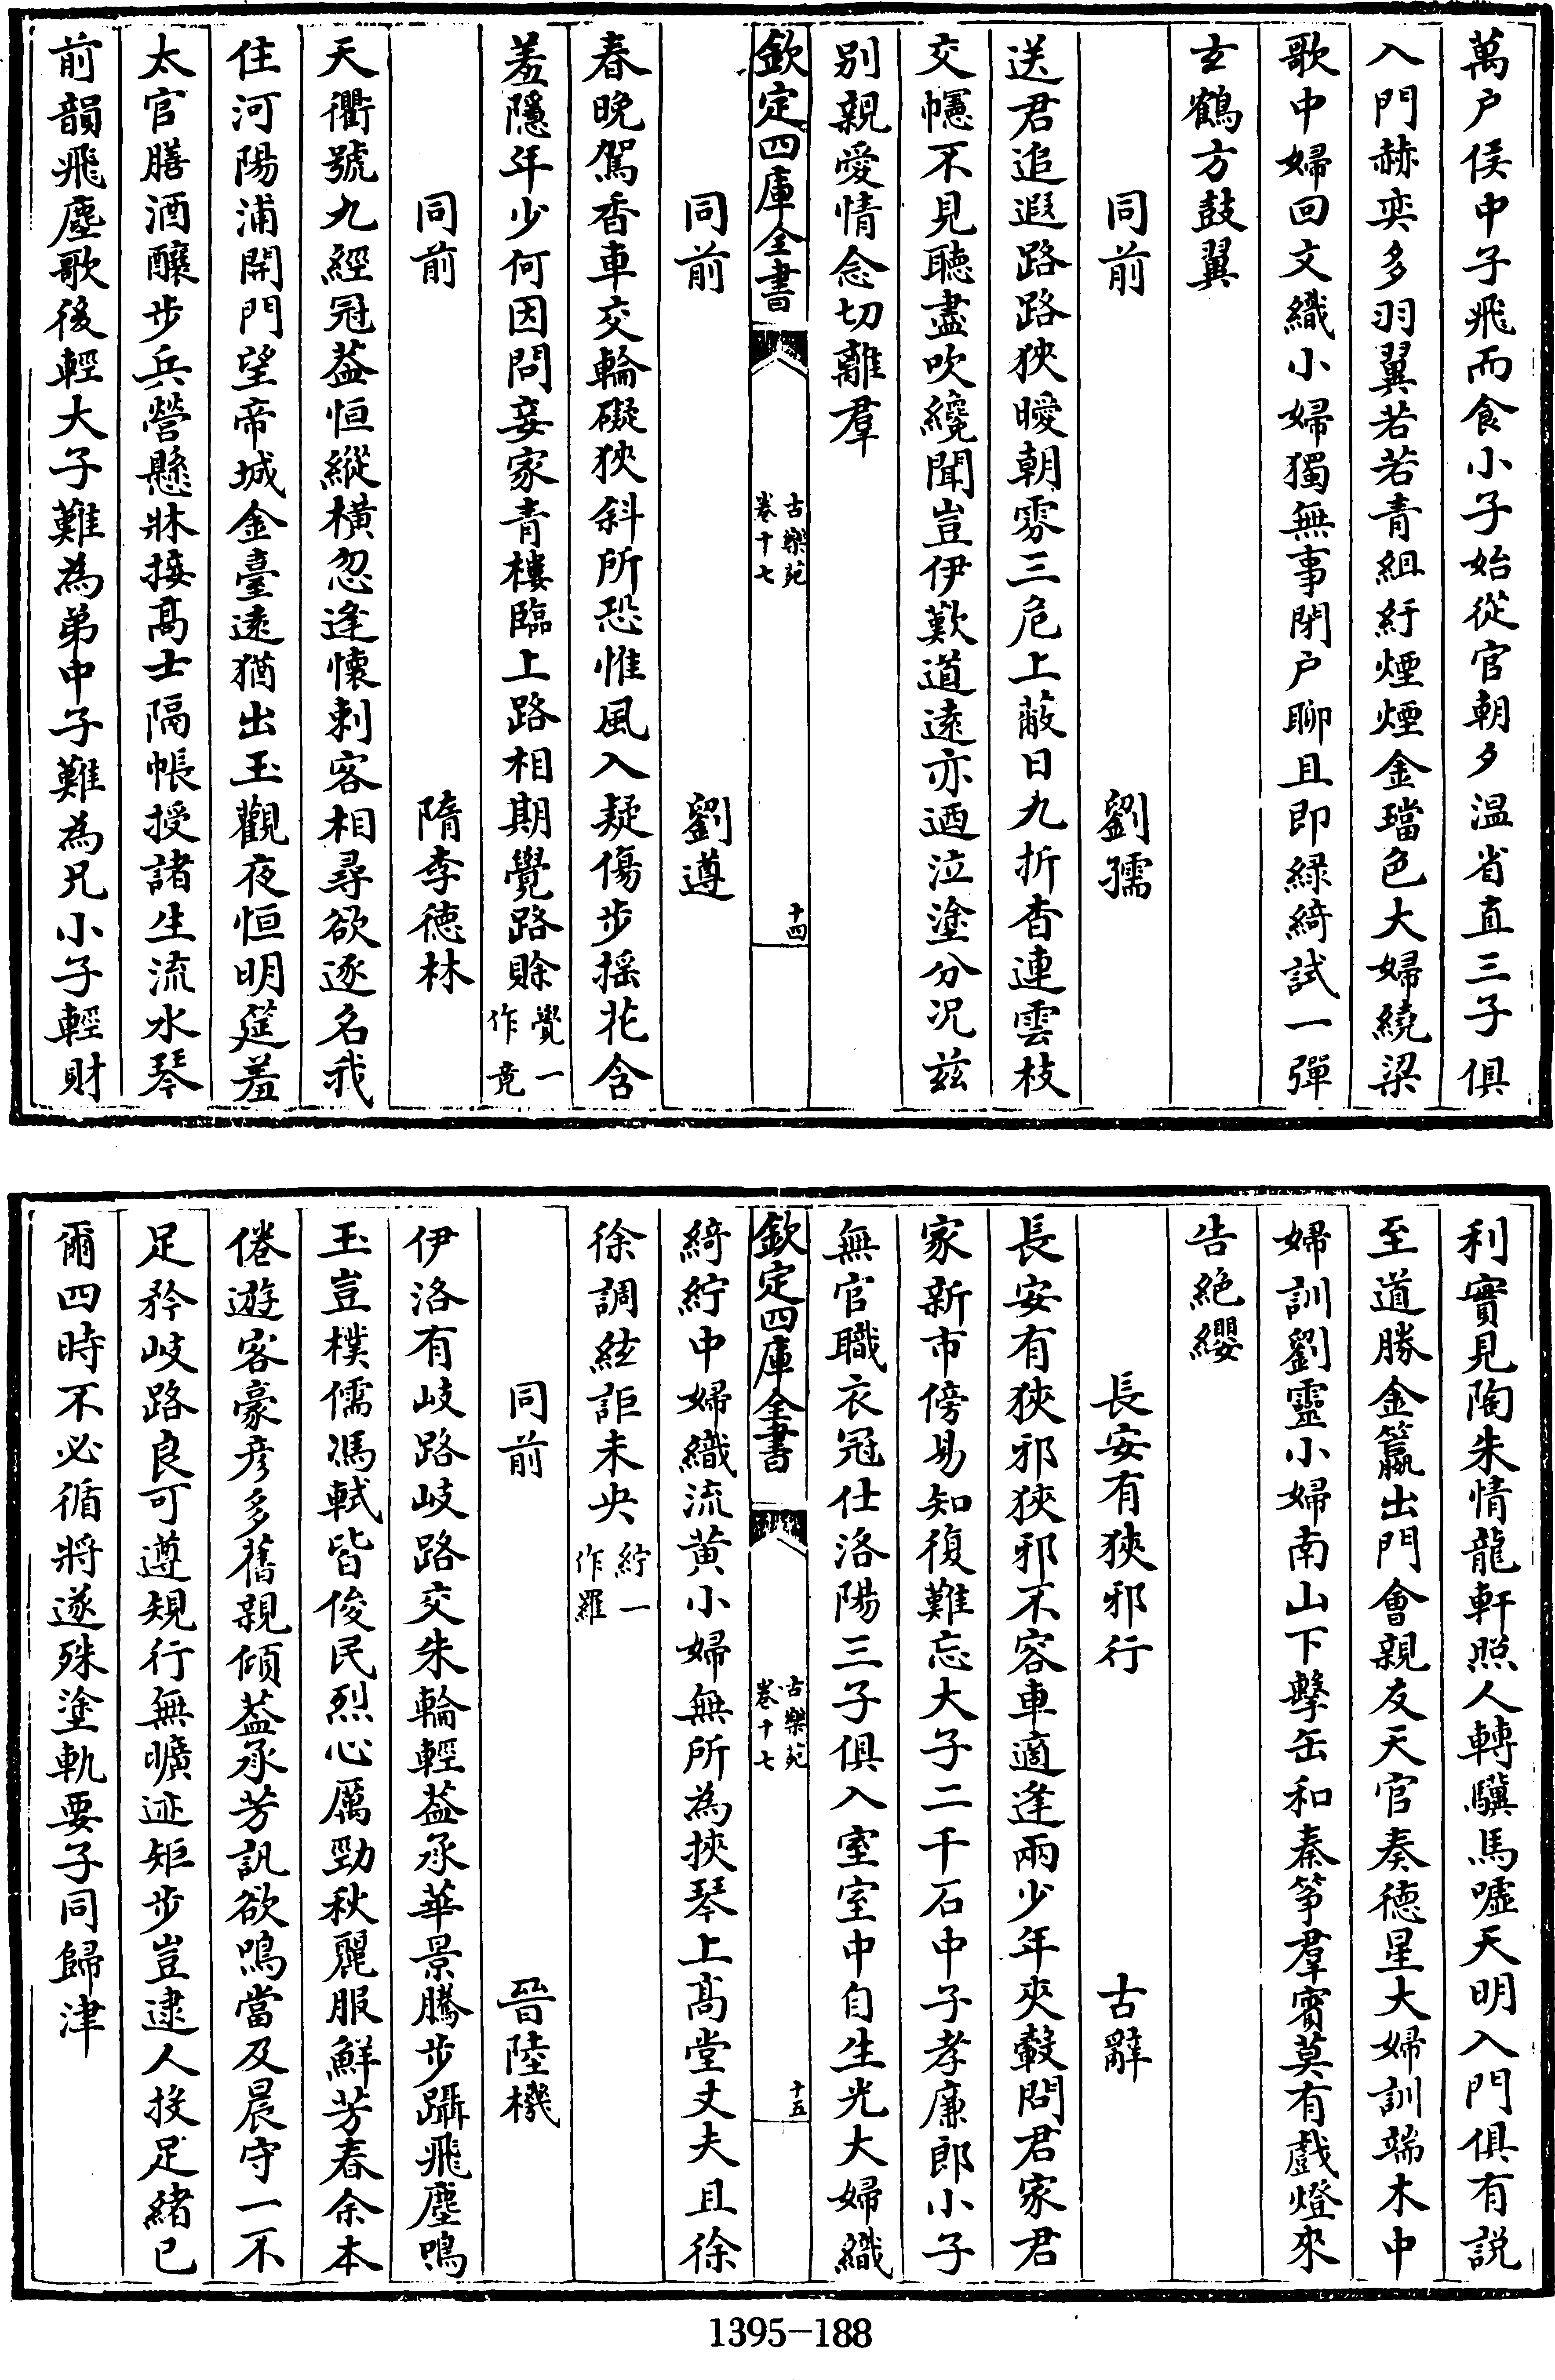 萬户侯中子飛而食小子始從官朝夕温省直三子俱
入門赫奕多羽翼若若青組紆煙煙金璫色大婦繞梁
歌中婦回文織小婦獨無事閉户聊且即緑綺試一彈
玄鶴方鼓翼
同前 劉孺
送君追遐路路狹曖朝雰三危上蔽日九折杳連雲枝
交幰不見聽盡吹纔聞豈伊歎道遠亦迺泣塗分况兹
别親愛情念切離羣
欽定四庫全書 古樂苑 卷十七 十四
同前 劉遵
春晚駕香車交輪礙狹斜所恐惟風入疑傷步揺花含
羞隱年少何因問妾家青樓臨上路相期覺路賖覺一作竟
同前 隋李徳林
天衢號九經冠葢恒縱横忽逢懷刺客相尋欲逐名我
住河陽浦開門望帝城金臺遠猶出玉觀夜恒明筵羞
太官膳酒釀步兵營懸牀接髙士隔帳授諸生流水琴
前韻飛塵歌後輕大子難為弟中子難為兄小子輕財
利實見陶朱情龍軒照人轉驥馬嘘天明入門俱有説
至道勝金籯出門會親友天官奏德星大婦訓端木中
婦訓劉靈小婦南山下擊缶和秦筝羣賓莫有戲燈來
告絶纓
長安有狹邪行 古辭
長安有狹邪狹邪不容車適逢兩少年夾轂問君家君
家新市傍易知復難忘大子二千石中子孝廉郎小子
無官職衣冠仕洛陽三子俱入室室中自生光大婦織
欽定四庫全書 古樂苑 卷十七 十五
綺紵中婦織流黄小婦無所為挾琴上髙堂丈夫且徐
徐調絃詎未央紵一作羅
同前 晉陸機
伊洛有岐路岐路交朱輪輕葢承華景騰步躡飛塵鳴
玉豈樸儒馮軾皆俊民烈心厲勁秋麗服鮮芳春余本
倦遊客豪彦多舊親傾葢承芳訊欲鳴當及晨守一不
足矜岐路良可遵規行無曠迹矩步豈逮人投足緒已
爾四時不必循將遂殊塗軌要子同歸津
1395-188